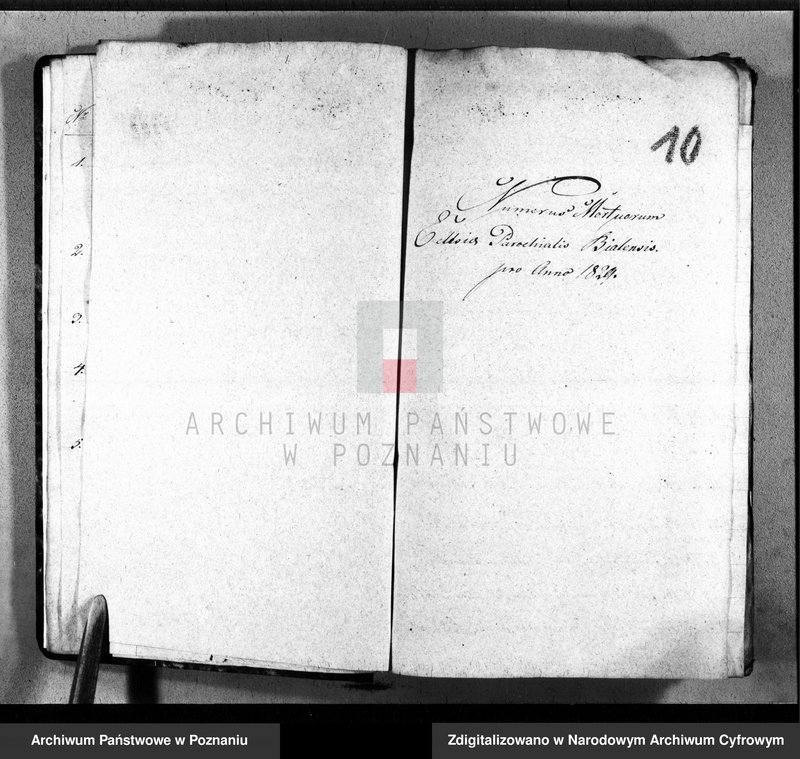 Nr
1.
2.
3.
4.
5.
10
Numerus Mortuorum
Ecclsiæ Parochialis Bialensis.
pro Anno 1829.
ARCHIWUM PAŃSTWOWE
W POZNANIU
Archiwum Państwowe w Poznaniu
Zdigitalizowano w Narodowym Archiwum Cyfrowym